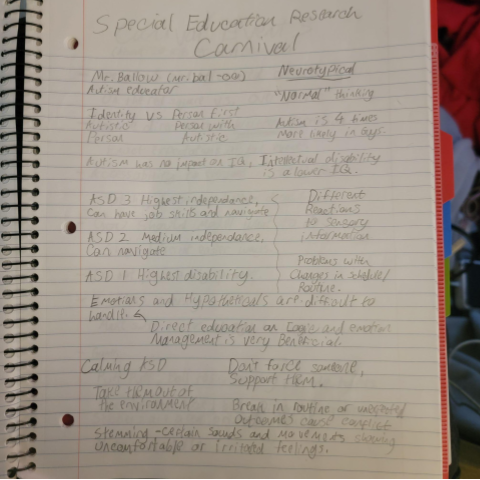 Special Education Research
Carnival
Mr. Ballow (mr. bal-oo) Neurotypical
Autism educator "Normal" thinking
Identity vs Person first
Autistic Person with Autism is 4 times
Person Autistic More likely in Guys.
Autism has no impact on IQ, Intellectual disability
is a lower IQ.
ASD 3 Highest independance, Different
Can have job skills and navigate Reactions
to sensory
ASD 2 Medium independance, information
Can navigate
Problems with
ASD 1 Highest disability. Changes in schedule/
Routine.
Emotions and Hypotheticals are difficult to
handle.
Direct education on Logic and emotion
Management is very Beneficial.
Calming ASD Don't force someone,
Support them.
Take them out of
the environment Break in routine or unexpected
outcomes cause conflict
Stemming - certain sounds and movements showing
uncomfortable or Irritated feelings.